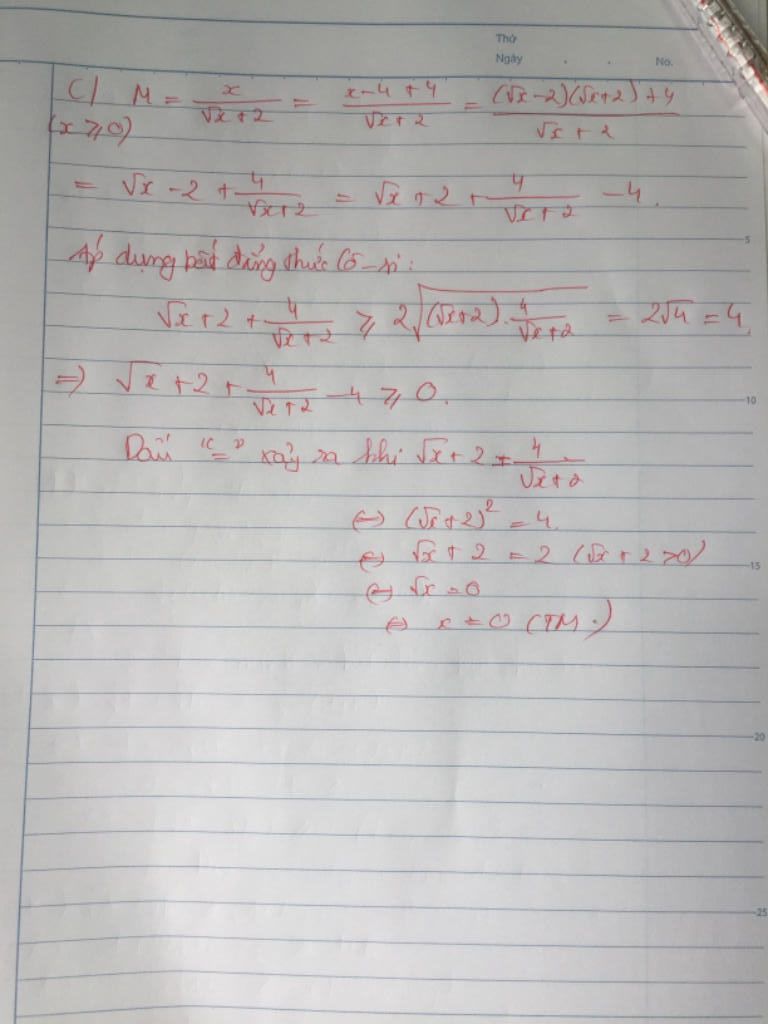 Thứ
Ngày . . No.
C) M = x/(√x+2) = (x-4+4)/(√x+2) = ((√x-2)(√x+2)+4)/(√x+2)
(x ⩾ 0)
= √x - 2 + 4/(√x+2) = √x + 2 + 4/(√x+2) - 4.
5
Áp dụng bất đẳng thức Cô-si:
√x + 2 + 4/(√x+2) ⩾ 2√((√x+2).4/(√x+2)) = 2√4 = 4
⇒ √x + 2 + 4/(√x+2) - 4 ⩾ 0.
10
Dấu "=" xảy ra khi √x + 2 = 4/(√x+2)
⇔ (√x+2)² = 4
⇔ √x + 2 = 2 (√x + 2 > 0)
15
⇔ √x = 0
⇔ x = 0 (TM.)
20
25